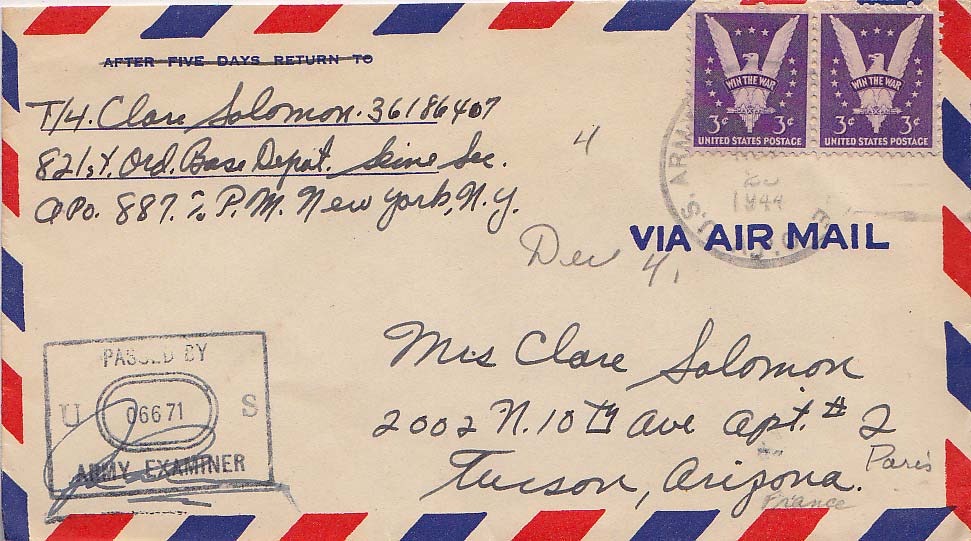 AFTER FIVE DAYS RETURN TO
T/4. Clare Solomon. 36186407
821st. Ord. Base Depot. Seine Sec.
APO. 887. % P.M. New York, N.Y.
WIN THE WAR
3¢ 3¢
UNITED STATES POSTAGE
WIN THE WAR
3¢ 3¢
UNITED STATES POSTAGE
U.S. ARMY
1944
4
VIA AIR MAIL
Dec 4,
PASSED BY
U 06671 S
ARMY EXAMINER
Mrs Clare Solomon
2002 N. 10th Ave Apt. # 2
Tucson, Arizona.
Paris
France